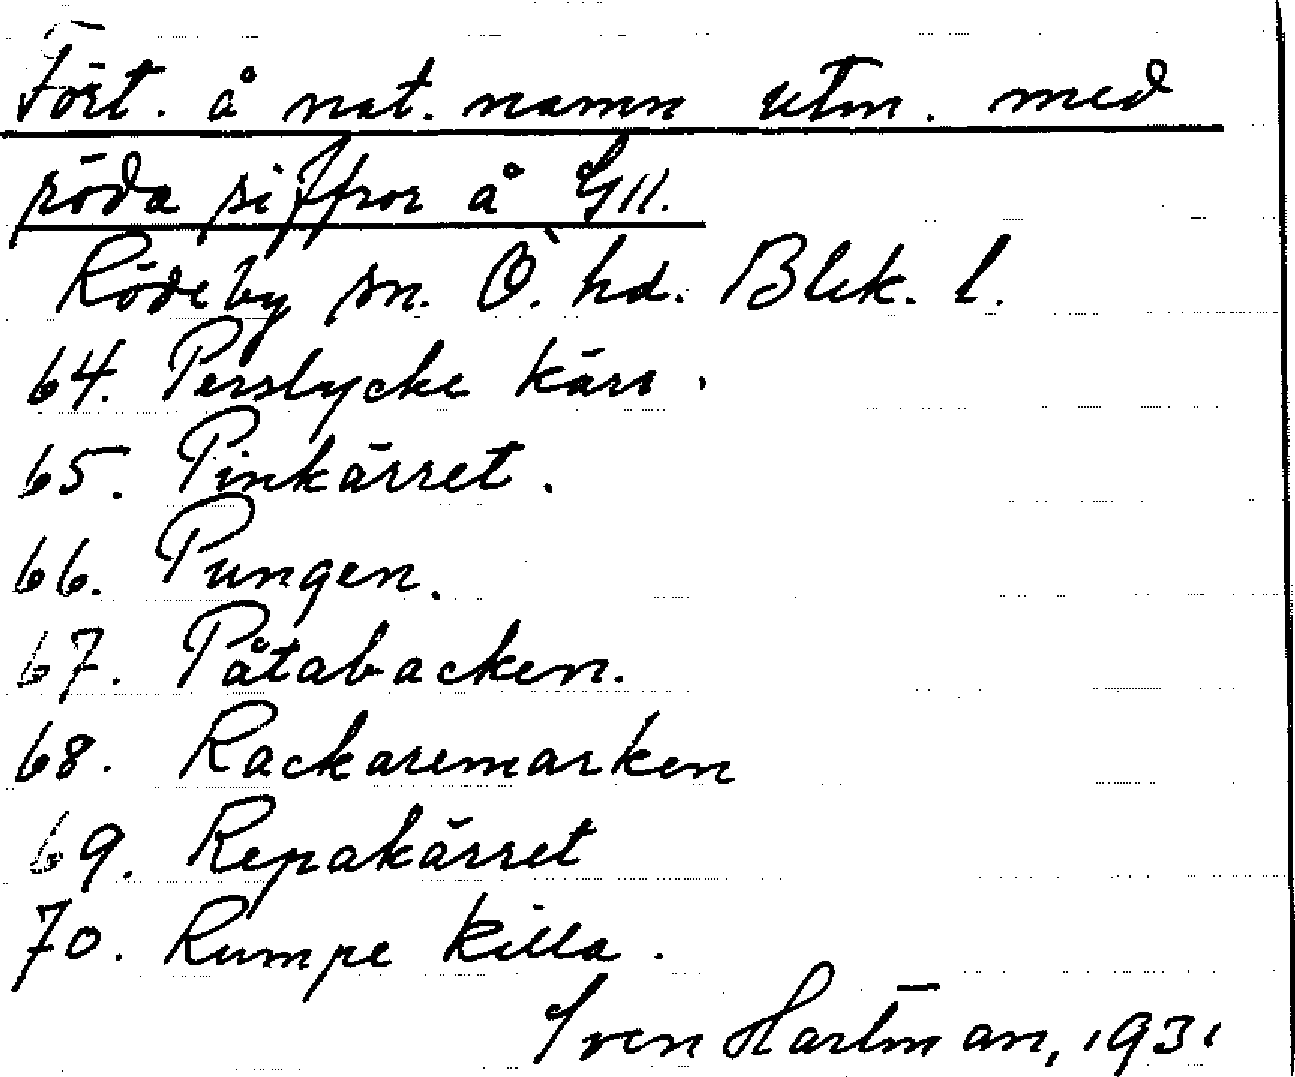 Fört. å nat. namn utm. med
röda siffror å
Rödeby sn. Ö. hd. Blek. l.
64. Perslycke kärr.
65. Pinkärret.
66. Pungen.
67. Påtabacken.
68. Rackaremarken
69. Repakärret
70. Rumpe killa.
Sven Hartman, 1931